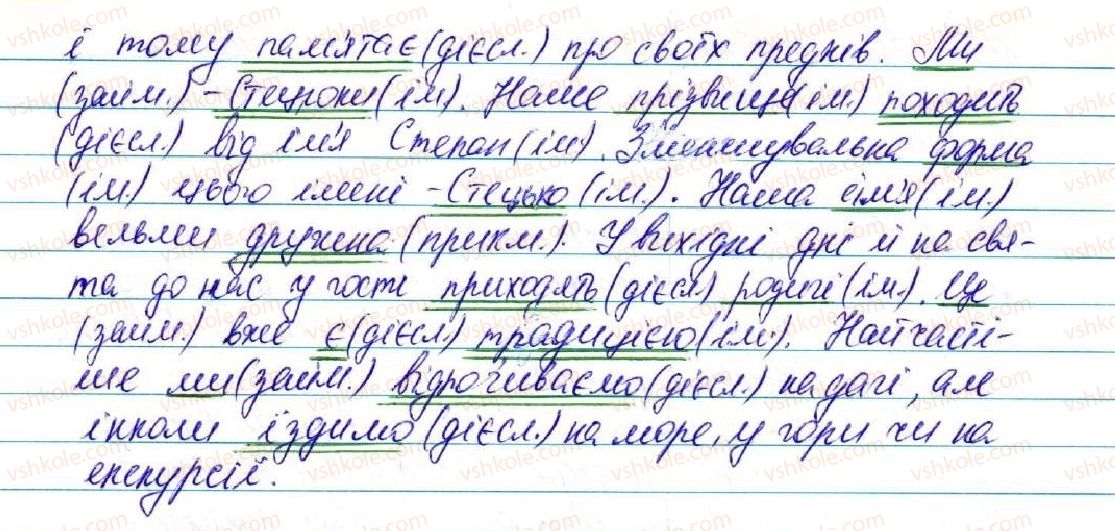 і тому пам'ятає (дієсл.) про своїх предків. Ми
(займ.) - Стецюки (ім). Наше прізвище (ім.) походить
(дієсл.) від ім'я Степан (ім). Зменшувальна форма
(ім.) цього імені - Стецько (ім.). Наша сім'я (ім.)
вельми дружна (прикм.). У вихідні дні й на свя-
та до нас у гості приходять (дієсл.) родичі (ім.). Це
(займ.) вже є (дієсл.) традицією (ім.). Найчасті-
ше ми (займ.) відпочиваємо (дієсл.) на дачі, але
інколи їздимо (дієсл.) на море, у гори чи на
екскурсії.